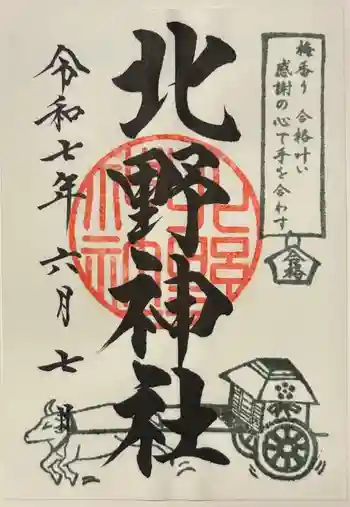 梅香り 合格叶い
感謝の心で手を合わす
合格
北野神社
北野神社
令和七年 六月 七日